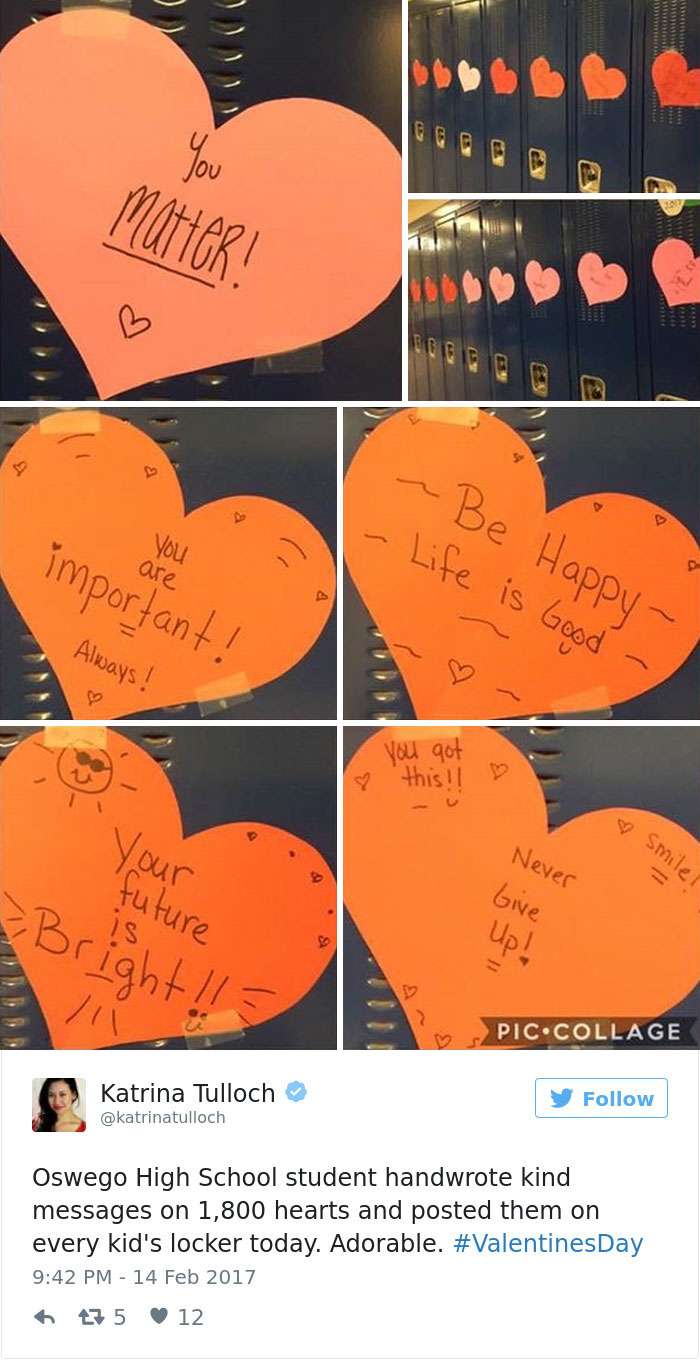 You
MATTER!
2017
You
are
important!
Always!
Be Happy
Life is Good
Your
future
is
Bright!!
You got
this!!
Smile!
Never
Give
Up!
PIC•COLLAGE
Katrina Tulloch
@katrinatulloch
Follow
Oswego High School student handwrote kind
messages on 1,800 hearts and posted them on
every kid's locker today. Adorable. #ValentinesDay
9:42 PM - 14 Feb 2017
5 12